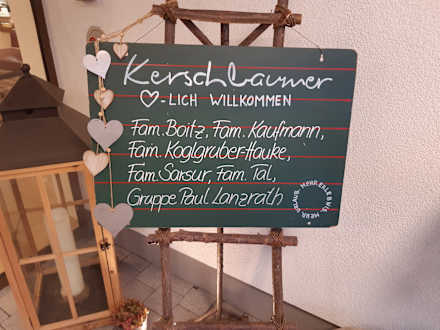 Kerschbaumer
♡-LICH WILLKOMMEN
Fam. Boitz, Fam. Kaufmann,
Fam. Koglgruber-Hauke,
Fam. Sarsur, Fam. Tal,
Gruppe Paul Lanzrath
MEHR URLAUB. MEHR ERLEBNIS.